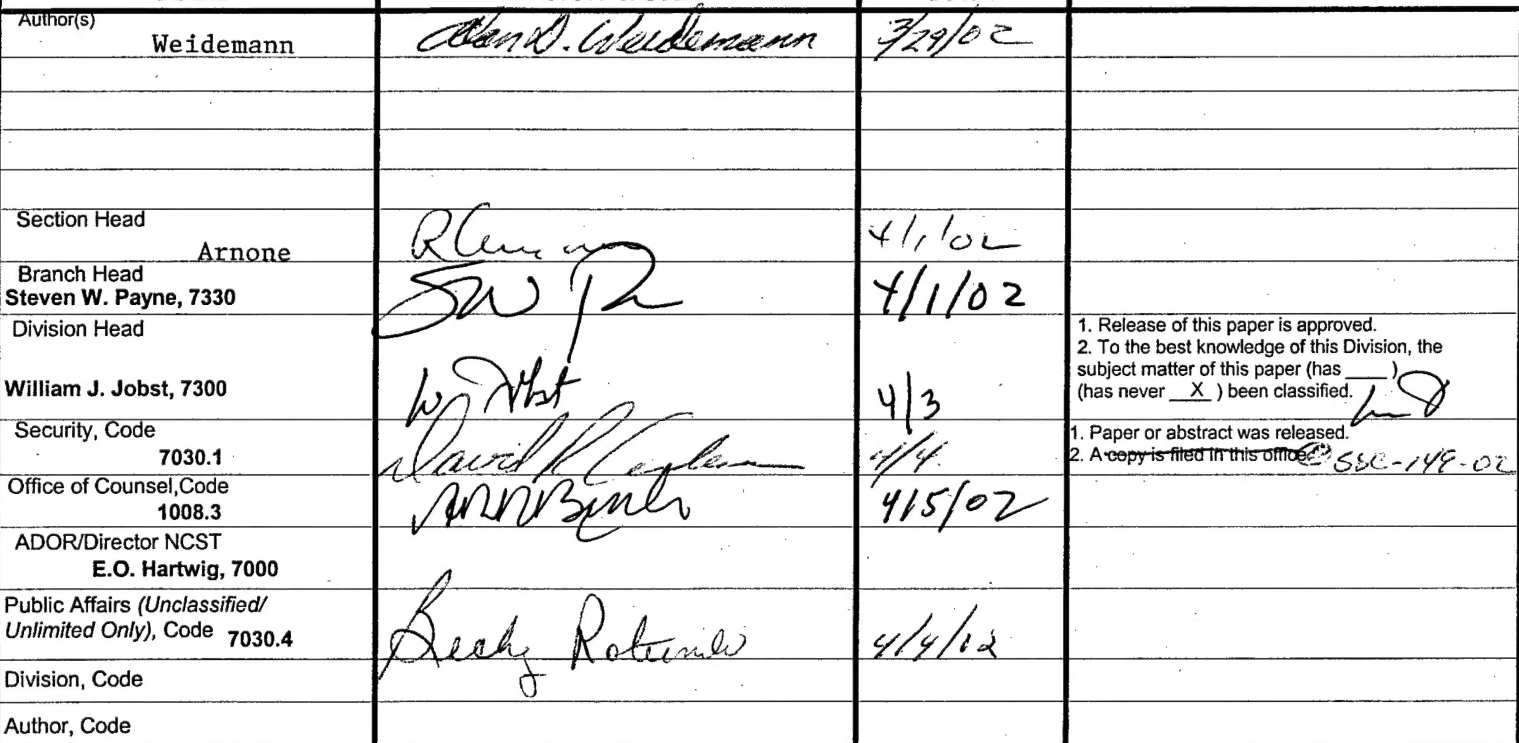 Author(s)
Weidemann Alan D. Weidemann 3/29/02
Section Head
Arnone 4/1/02
Branch Head
Steven W. Payne, 7330 SW P 4/1/02
Division Head
1. Release of this paper is approved.
2. To the best knowledge of this Division, the
subject matter of this paper (has ____ )
(has never X ) been classified.
William J. Jobst, 7300 W Jobst 4/3
Security, Code
7030.1 David R 4/4
1. Paper or abstract was released.
2. A copy is filed in this office @ SSC-149-02
Office of Counsel,Code
1008.3 4/5/02
ADOR/Director NCST
E.O. Hartwig, 7000
Public Affairs (Unclassified/
Unlimited Only), Code 7030.4 Becky Rotundo 4/4/02
Division, Code
Author, Code